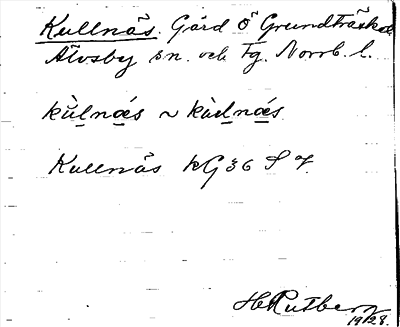 Kullnäs. Gård Ö Grundträsket
Älvsby sn. och Tg. Norrb. l.
kùlnǽs ~ kùlnǽs
Kullnäs kG 36 S 7.
H Rutberg
1928.